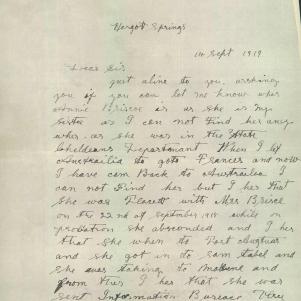 Springs
14 Sept 1919
Dear Sir
just a line to you, asking
you if you can let me know wher
Annie Briscoe is as she is my
sister as I can not find her any
wher as she was in the State
Department When I left
to goto France and now
I have com Back to
can not Find her but I her that
She was with Mrs
on the 22nd of September 1918 while on
probation she absconded and I her
that she when to Port
and she got in to som
and she was taking to and
From this I her that she was
sent Information Bureau